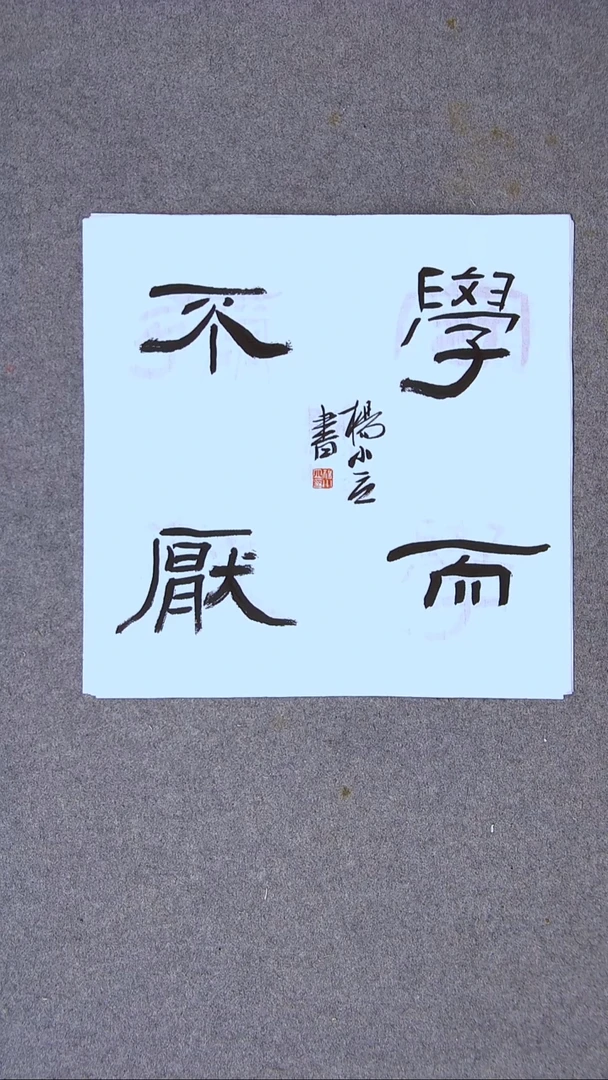 學而
不厭
楊小立
書